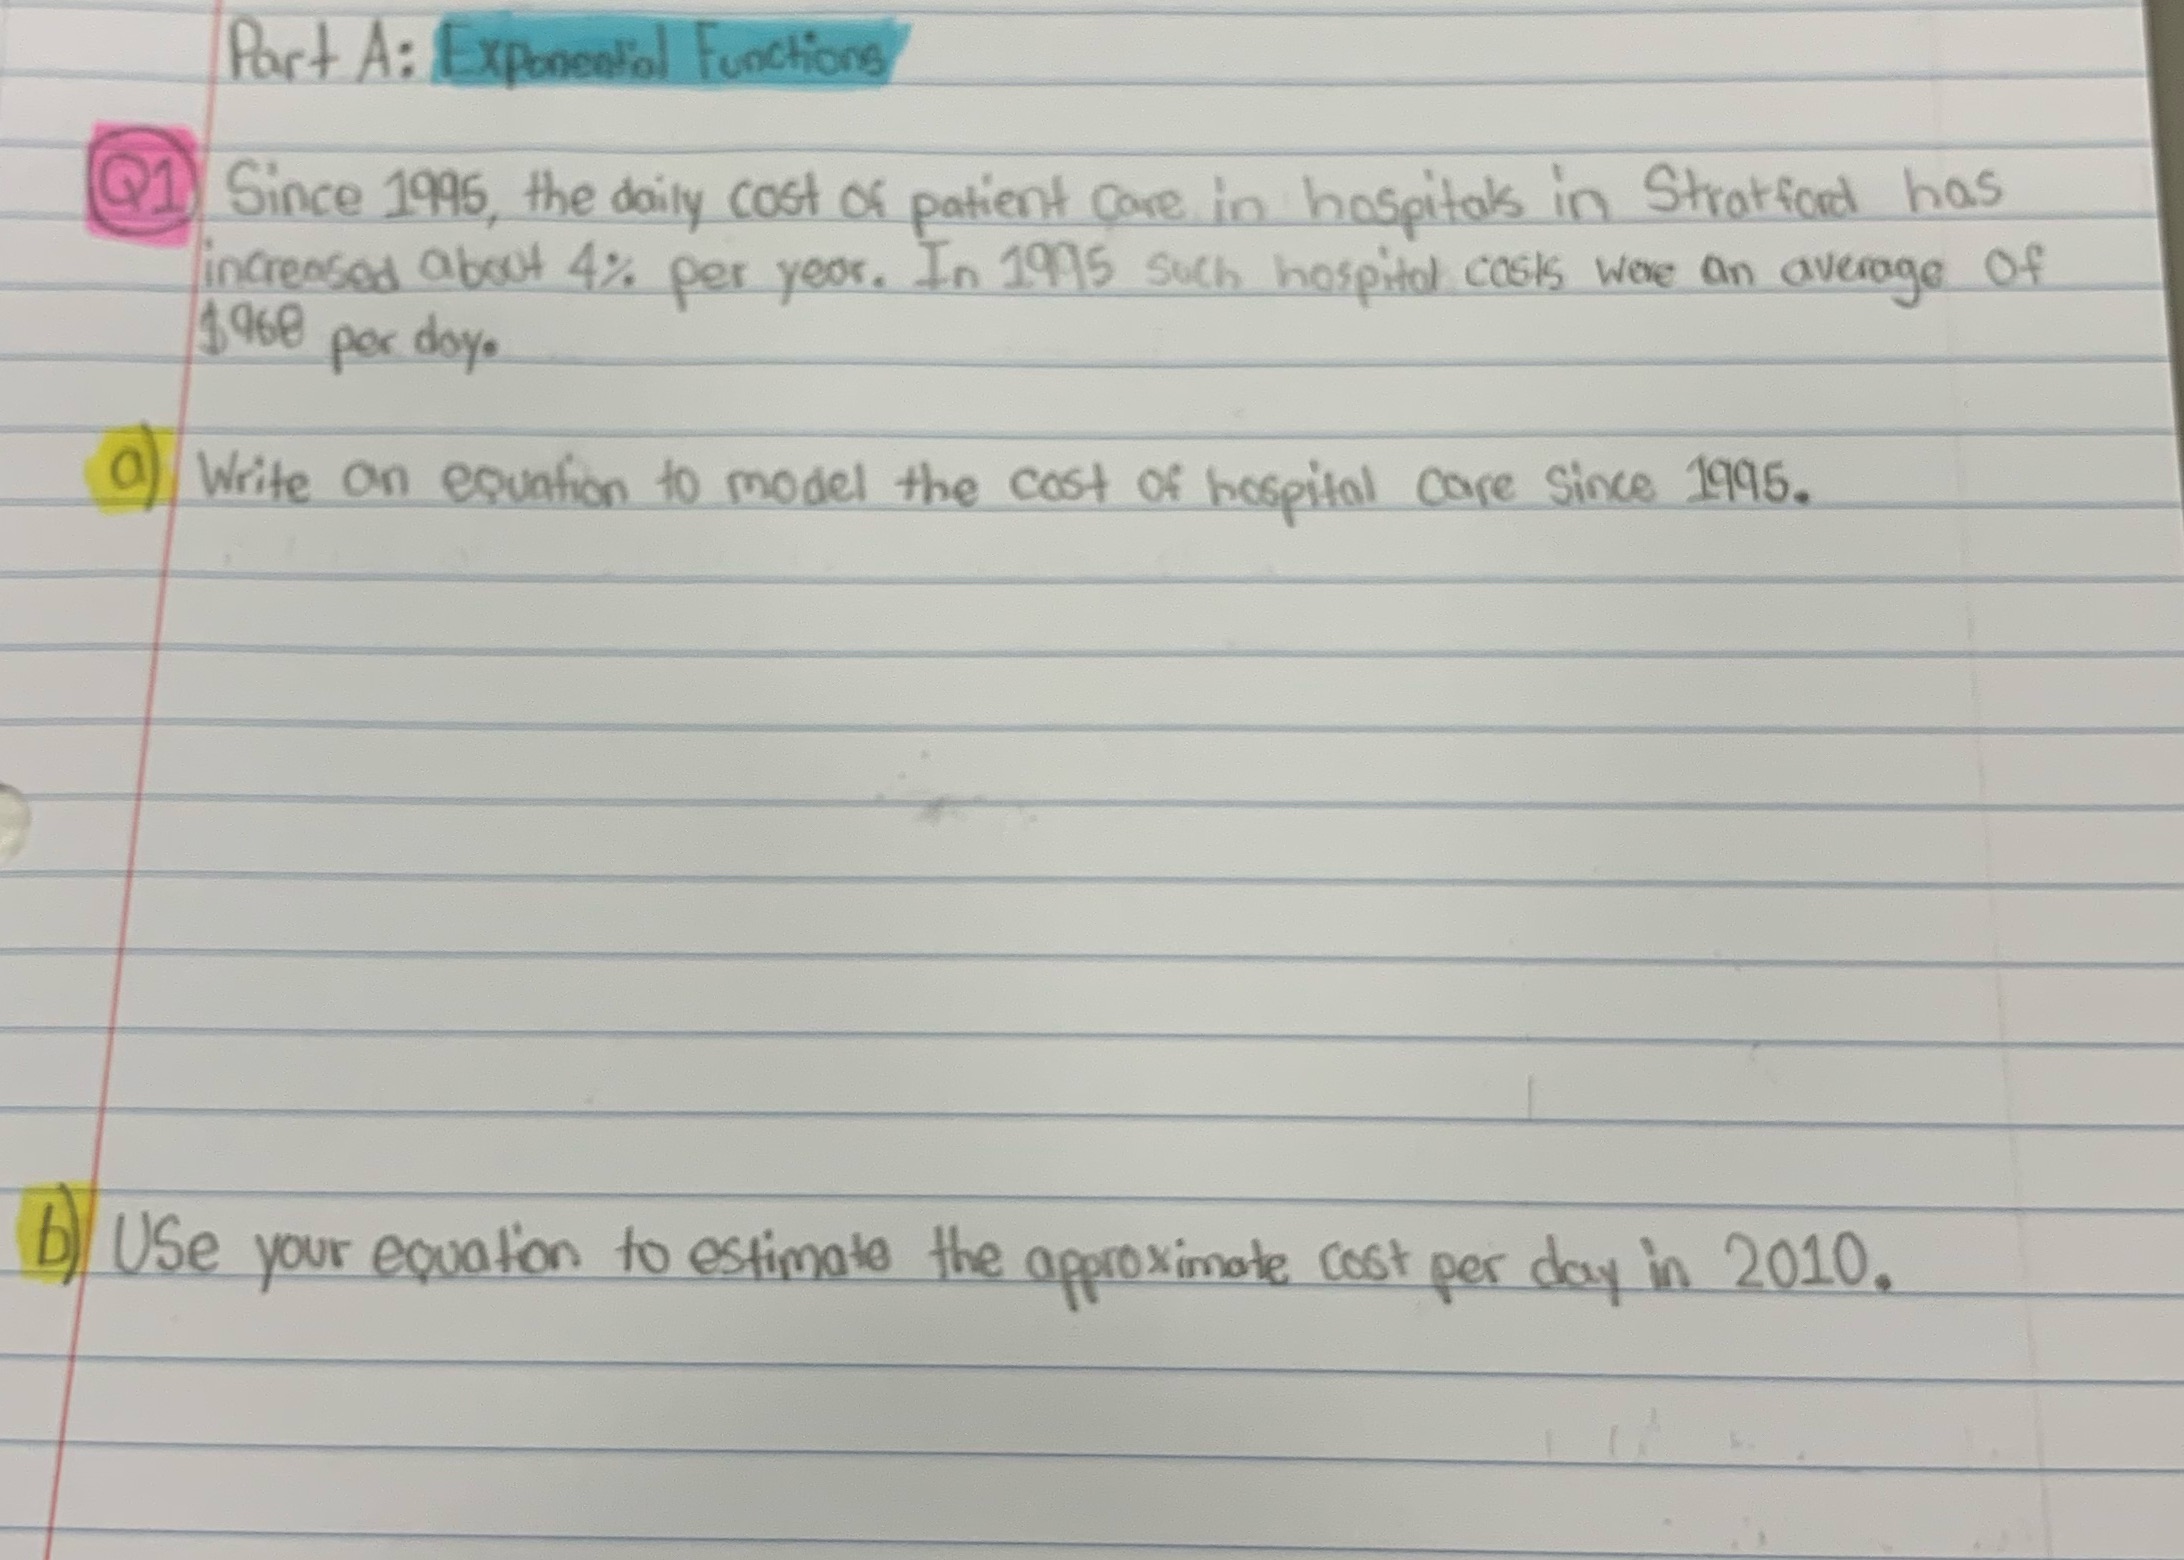 Part A: Exponential Functions
Q1 Since 1995, the daily cost of patient care in hospitals in Stratford has
increased about 4% per year. In 1995 such hospital costs were an average of
$968 per day.
a) Write an equation to model the cost of hospital care since 1995.
b) Use your equation to estimate the approximate cost per day in 2010.